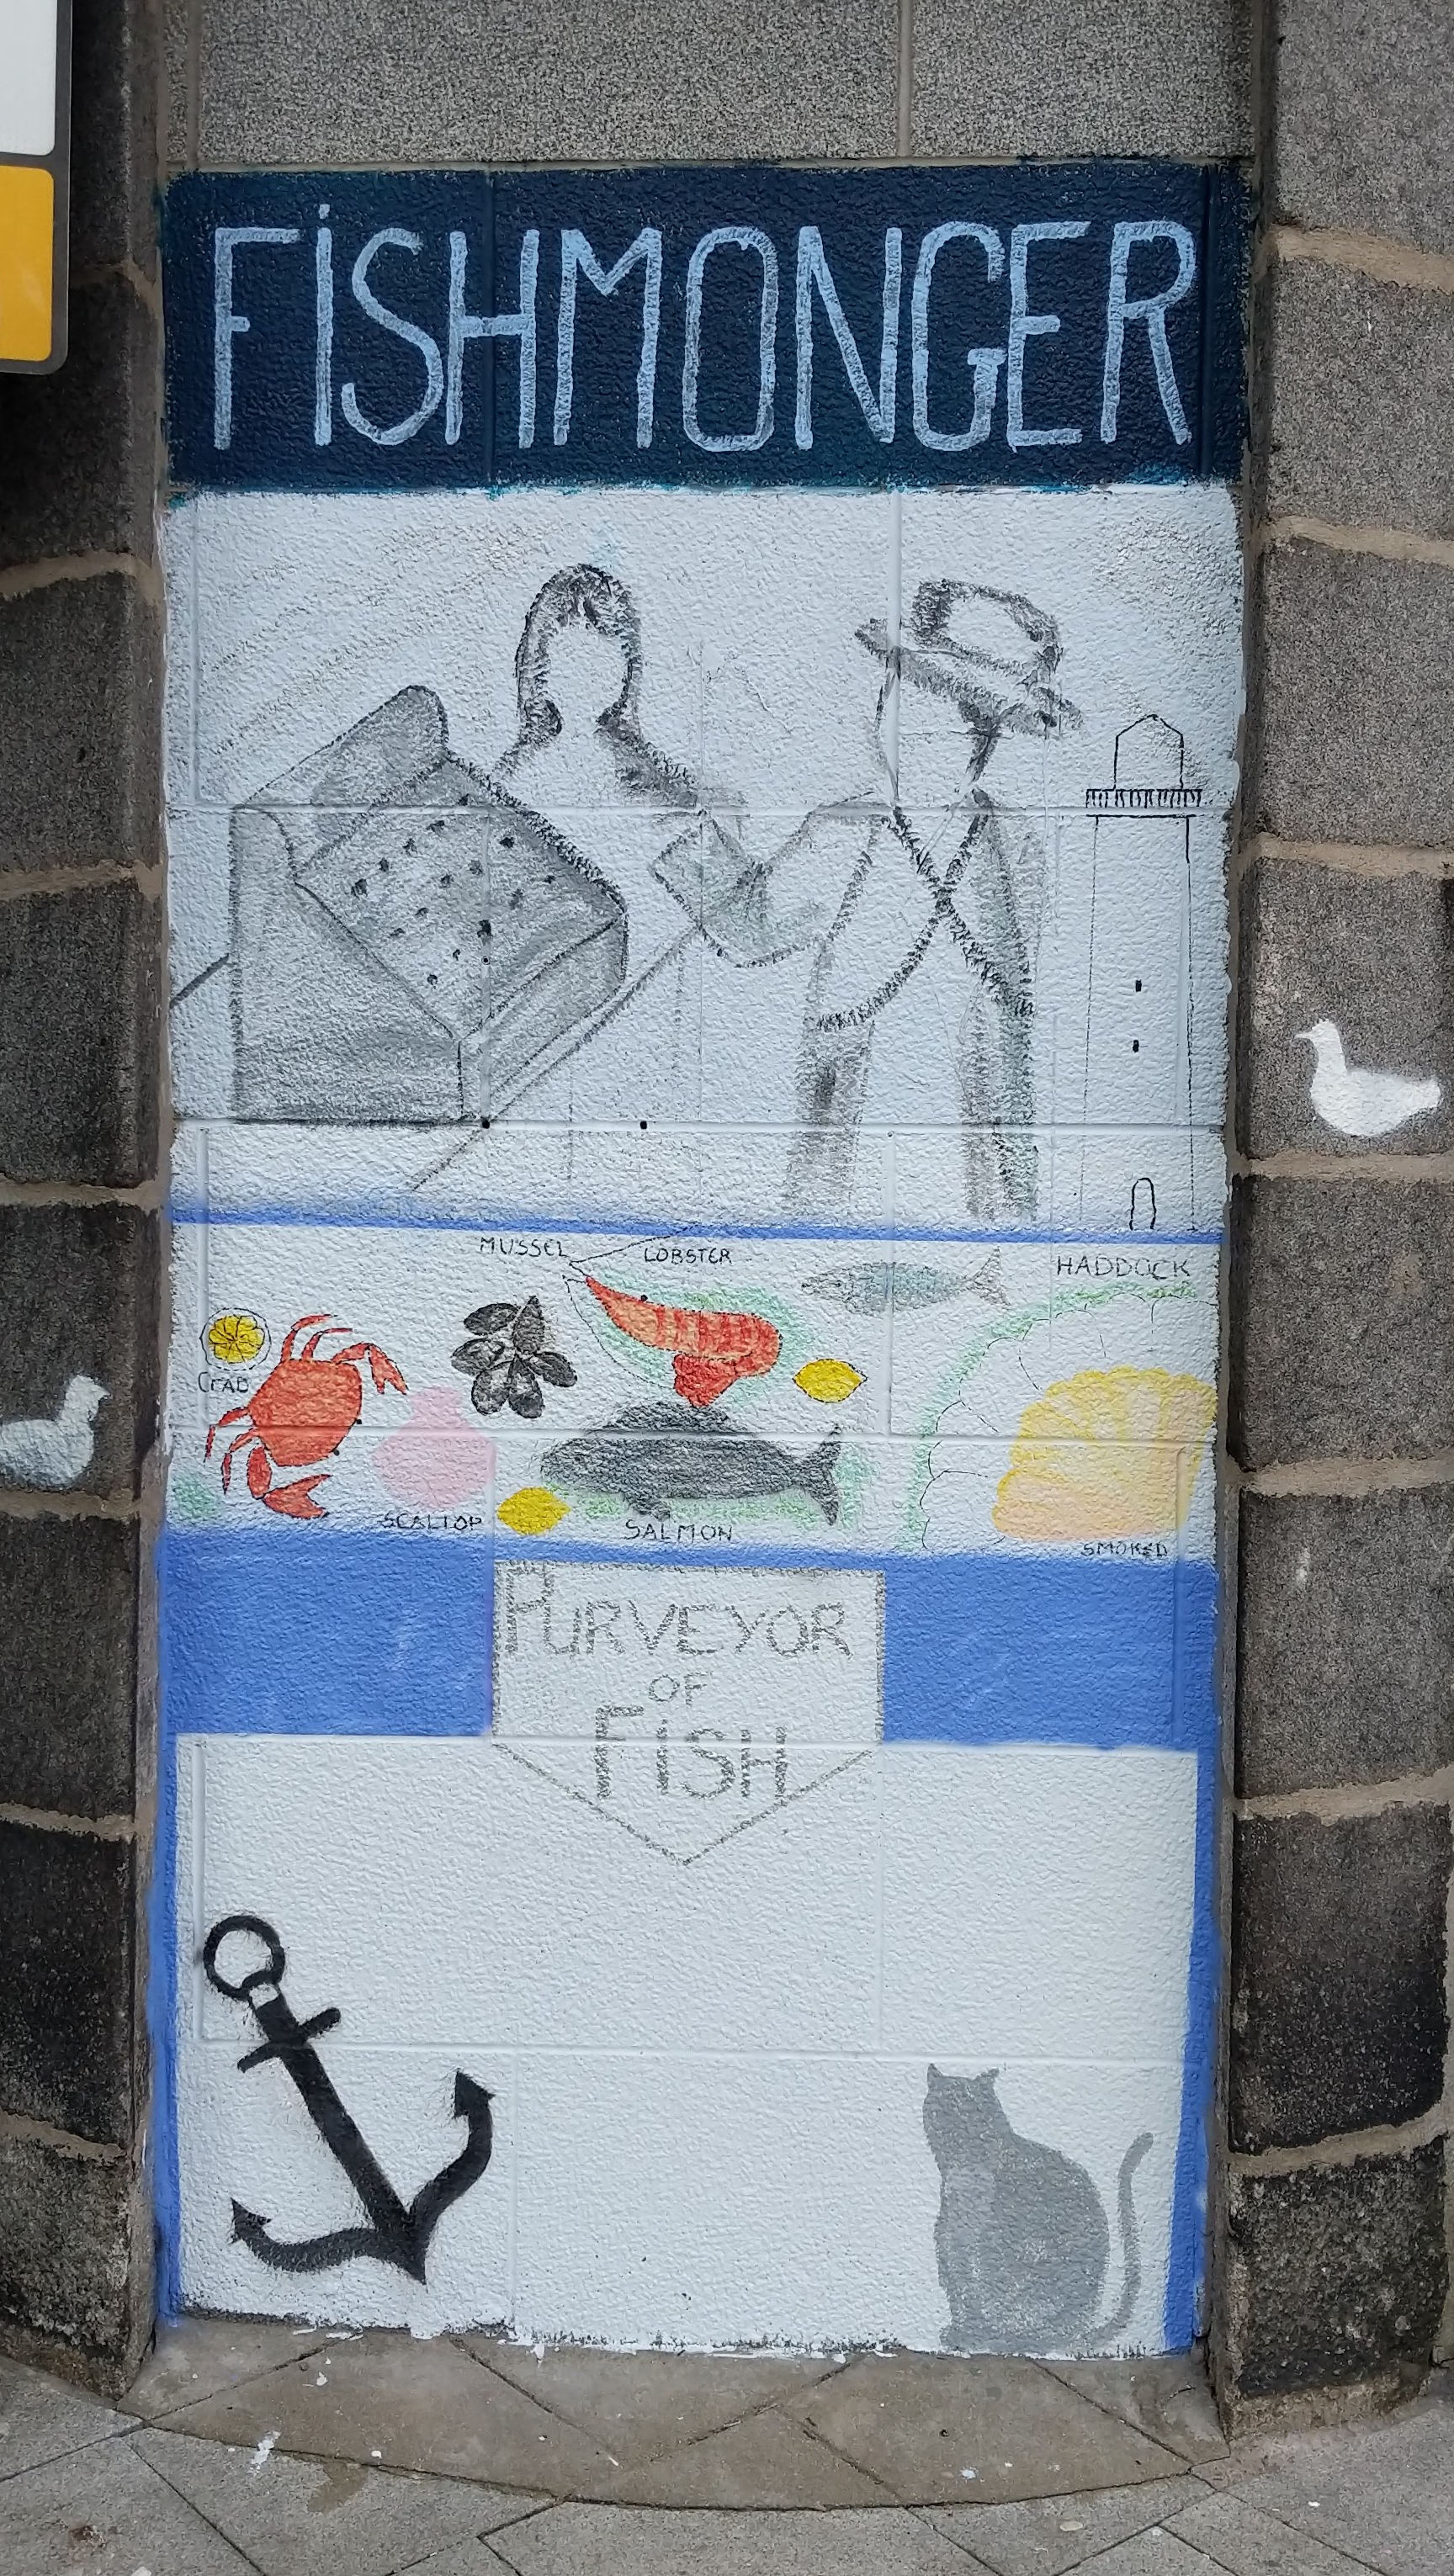 FiSHMONGER
MUSSEL LOBSTER
HADDOCK
CrAB
SCALLOP
SALMON
SMOKED
PURVEYOR
OF
FiSH